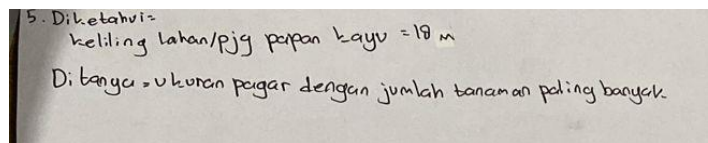 5. Diketahui =
keliling lahan/pjg papan kayu = 18 m
Ditanya = ukuran pagar dengan jumlah tanaman paling banyak.